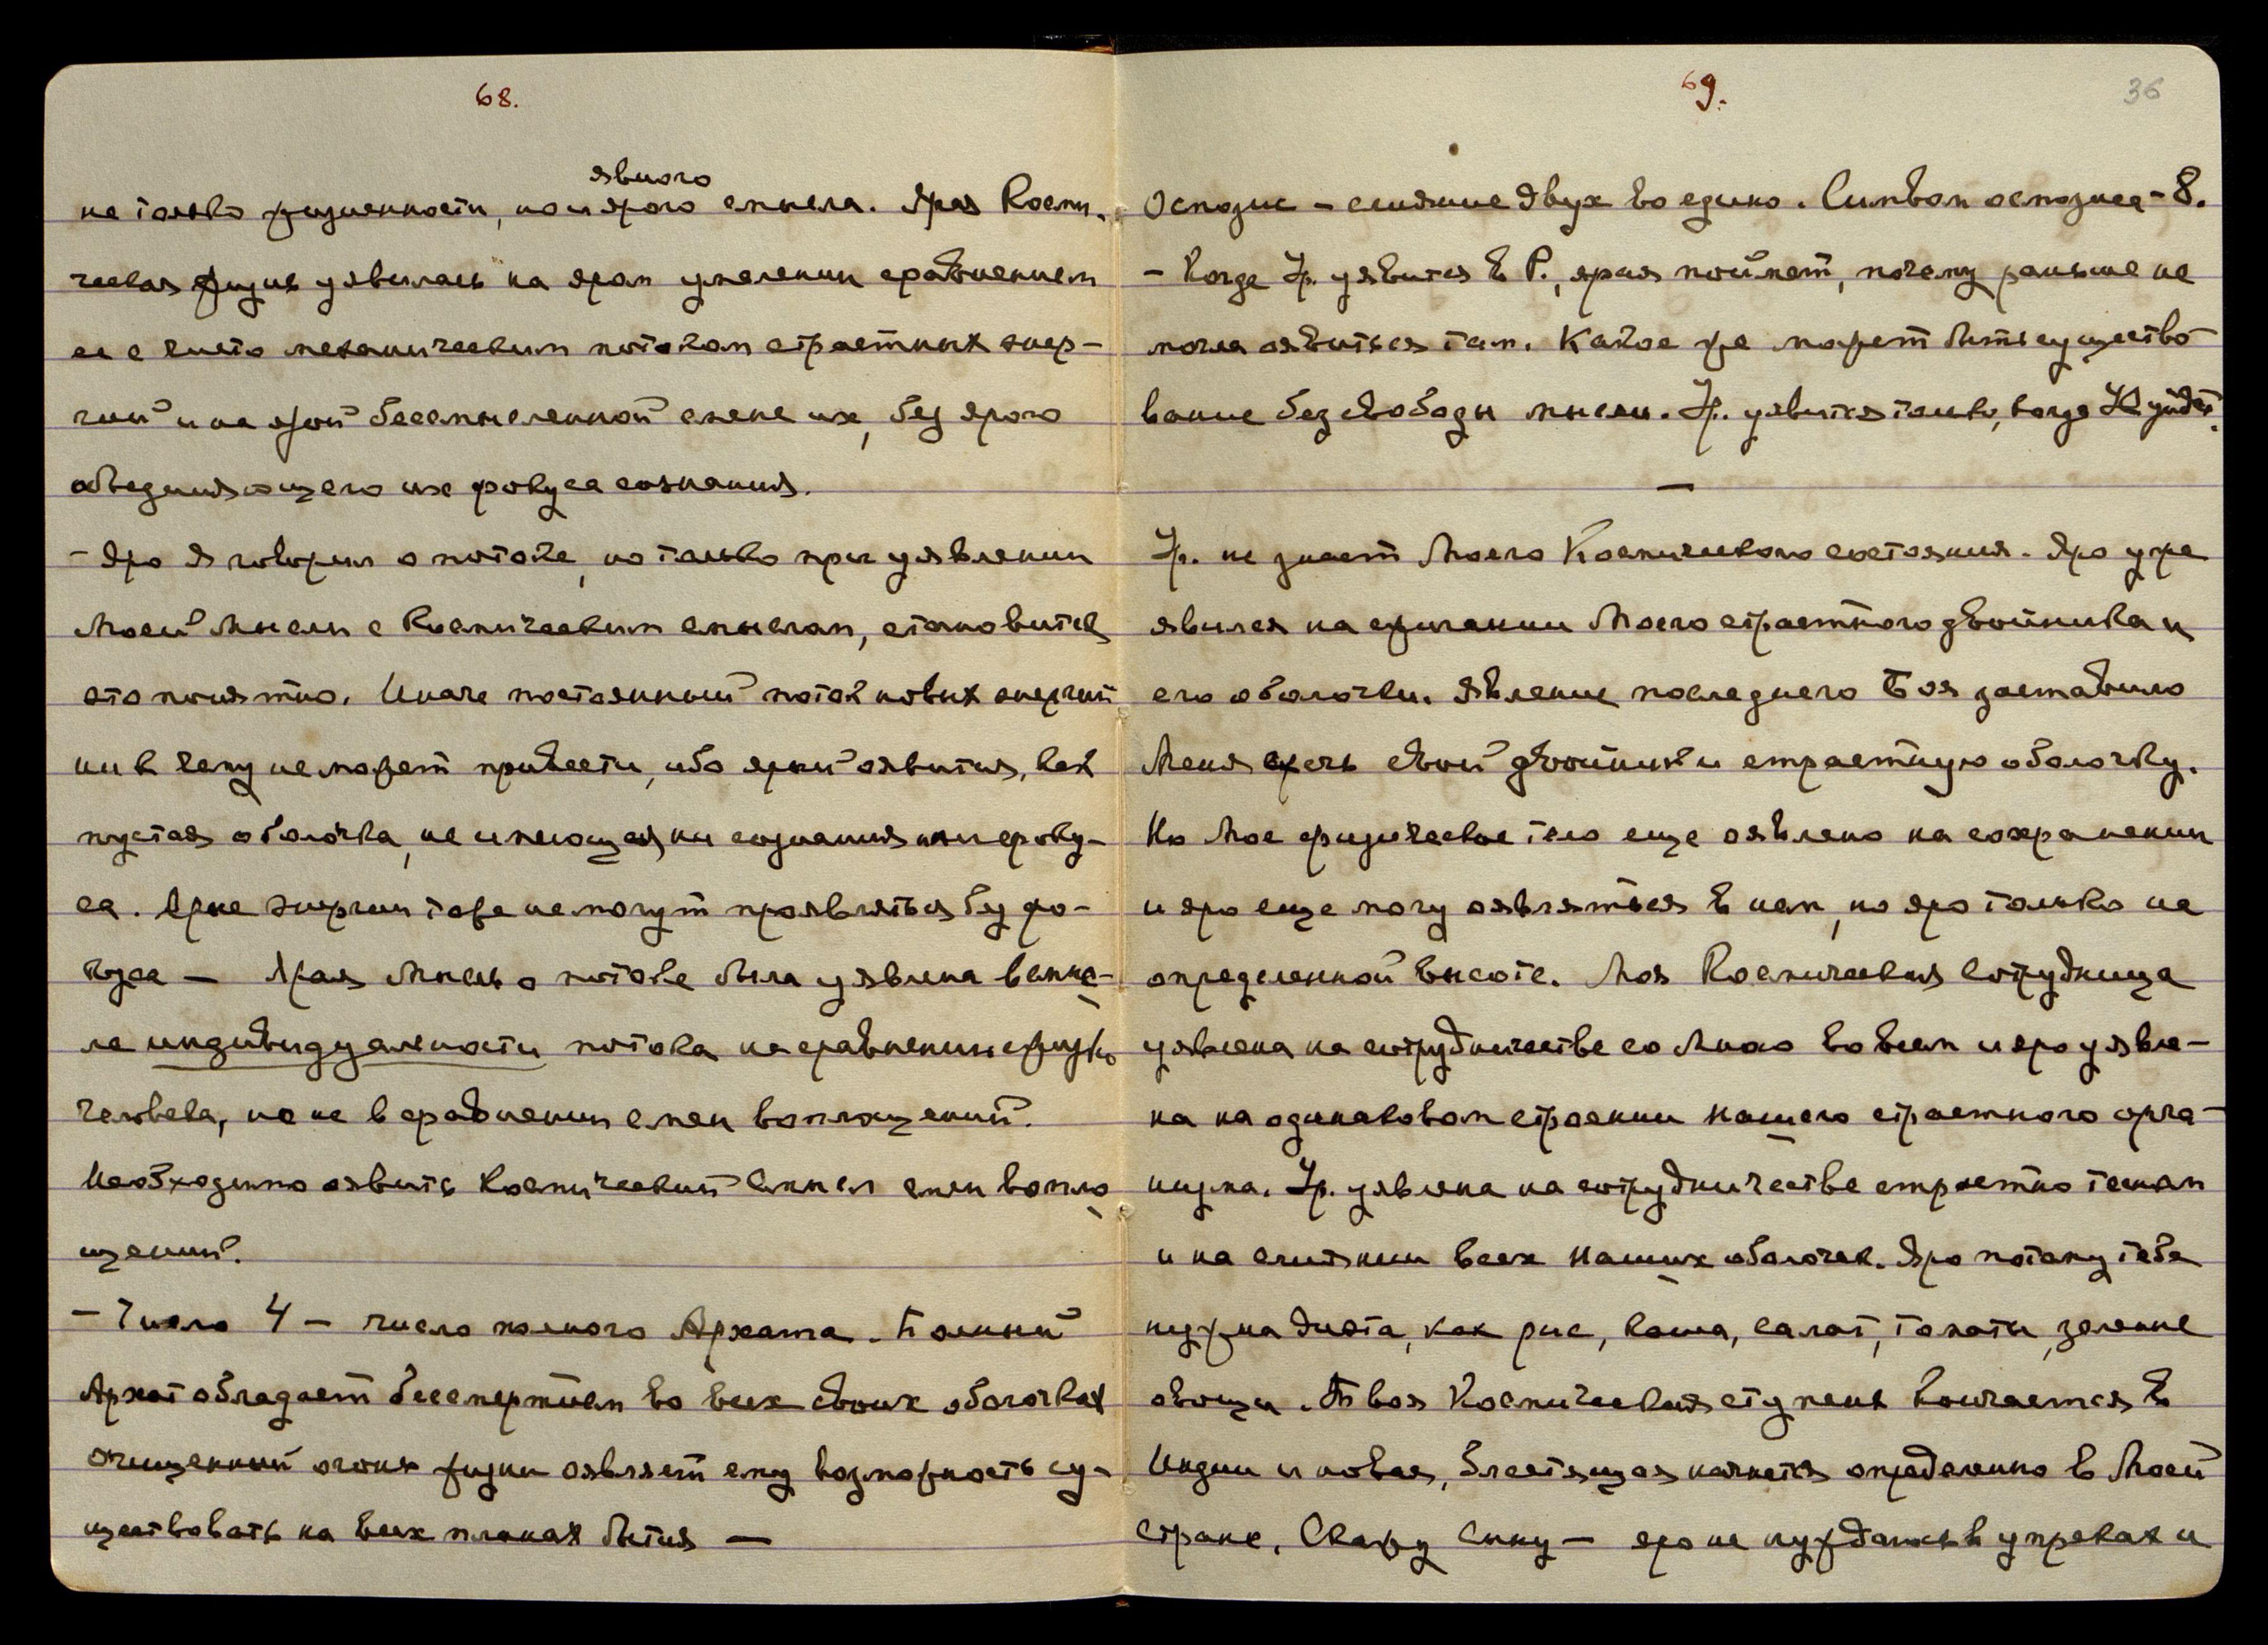 68.
не только жизненности, но и ярого явного смысла. Ярая Косми-
ческая жизнь уявилась на яром умалении сравнением
ее с чисто механическим потоком страстных энер-
гий и на ярой бессмысленной смене их, без ярого
объединяющего их фокуса сознания.
- Яро Я говорил о потоке, но только при уявлении
Моей Мысли с Космическим смыслом, становится
это понятно. Иначе постоянный поток новых энергий
ни к чему не может привести, ибо ярый оявится, как
пустая оболочка, не имеющая ни сознания ни фоку-
са. Ярые энергии тоже не могут проявляться без фо-
куса — Ярая Мысль о потоке была уявлена в смыс-
ле индивидуальности потока на сравнении с жизнью
человека, но не в сравнении смен воплощений.
Необходимо оявить Космический Смысл смен вопло
щений.
- Число 4 — число полного Архата. Полный
Архат обладает бессмертием во всех своих оболочках
очищенный огонь жизни оявляет ему возможность су-
ществовать на всех планах Бытия —
69.
36
Осмозис - слияние двух во едино. Символ осмозиса - 8.
- Когда Ур. уявится в Р., ярая поймет, почему раньше не
могла оявиться там. Какое же может быть существо
вание без свободы мысли. Ур. уявится только, когда Х уйдет.
—
Ур. не знает Моего Космического состояния. Яро уже
явился на сжигании Моего страстного двойника и
его оболочки. Явление последнего Боя заставило
Меня сжечь свой двойник и страстную оболочку.
Но Мое физическое тело еще оявлено на сохранении
и яро еще могу оявляться в нем, но яро только на
определенной высоте. Моя Космическая Сотрудница
уявлена на сотрудничестве со Мною во всем и яро уявле-
на на одинаковом строении нашего страстного орга-
низма. Ур. уявлена на сотрудничестве страстно тесном
и на слиянии всех наших оболочек. Яро потому тебе
нужна диэта, как рис, каша, салат, томаты, зеленые
овощи. Твоя Космическая ступень кончается в
Индии и новая, блестящая начнется определенно в Моей
Стране. Скажу Сыну — яро не нуждаюсь в упреках и